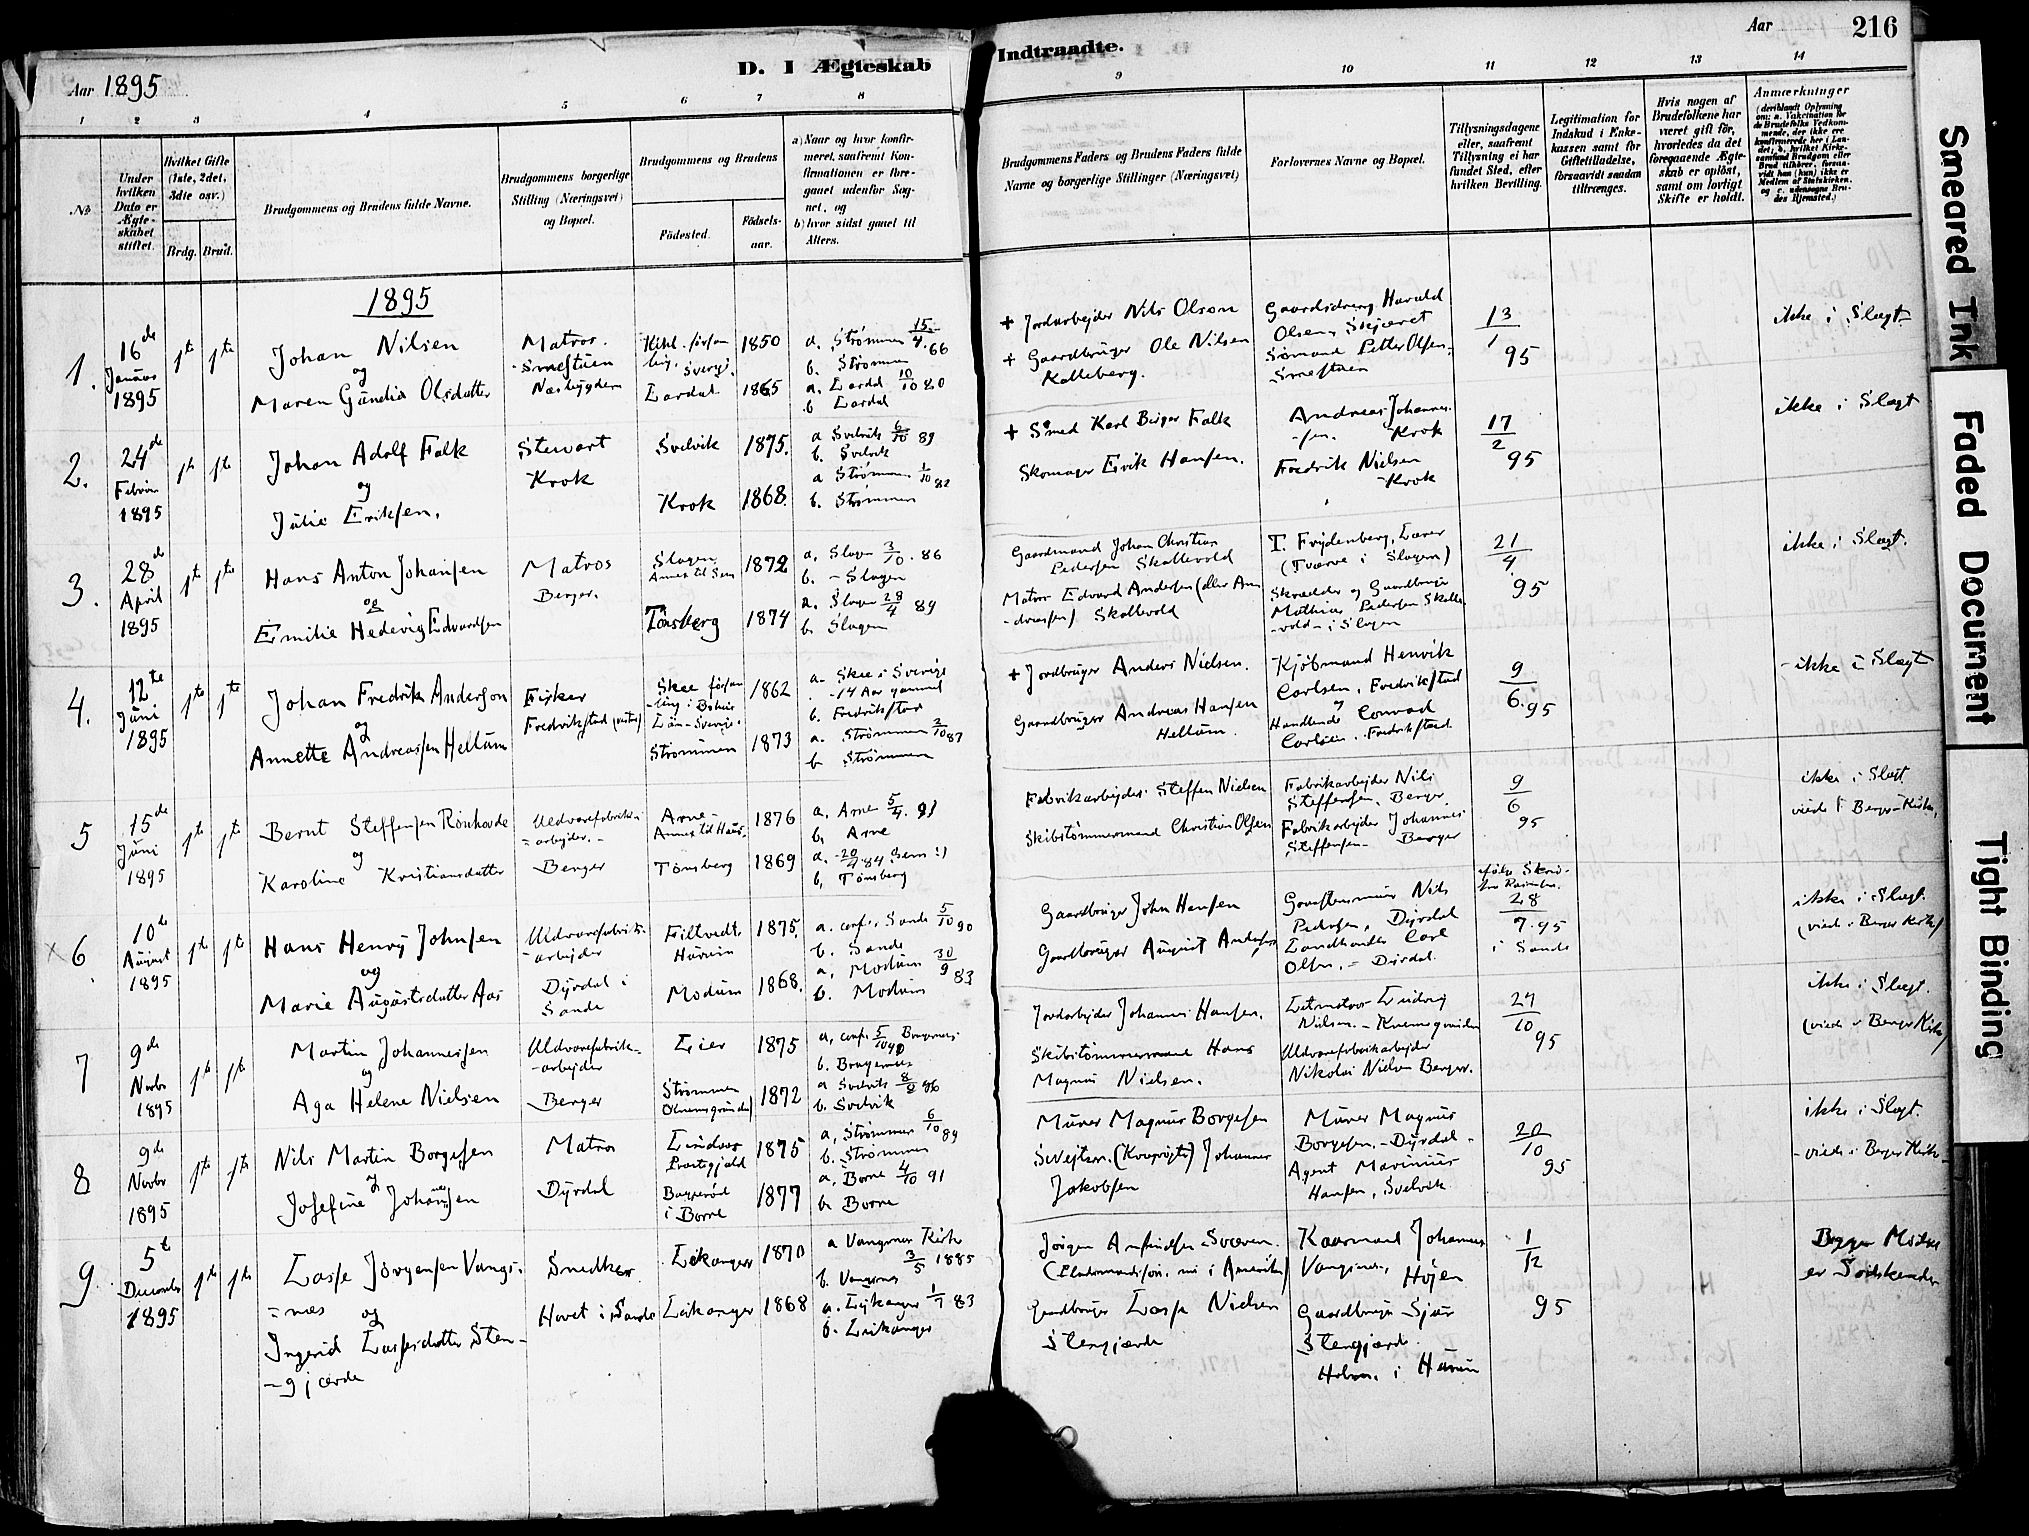 Aar 1895
D. I Ægteskab Indtraadte.
Aar 216
1 2 3 4 5 6 7 8 9 10 11 12 13 14
No
Under hvilken Dato er Ægteskabet stiftet.
Hvilket Gifte (1ste, 2det, 3die osv.)
Brdg. Brud.
Brudgommens og Brudens fulde Navne.
Brudgommens borgerlige Stilling (Næringsvei) og Bopæl.
Brudgommens og Brudens
Födested. Födselsaar.
a) Naar og hvor konfirmeret, saafremt Konfirmationen er foregaaet udenfor Sognet, og
b) hvor sidst gaaet til Alters.
Brudgommens Faders og Brudens Faders fulde Navne og borgerlige Stillinger (Næringsvei)
Forlovernes Navne og Bopæl.
Tillysningsdagene eller, saafremt Tillysning ei har fundet Sted, efter hvilken Bevilling.
Legitimation for Indskud i Enkekassen samt for Giftetilladelse, forsaavidt saadan tiltrænges.
Hvis nogen af Brudefolkene har været gift för, hvorledes da det foregaaende Ægteskab er oplöst, samt om lovligt Skifte er holdt.
Anmærkninger
(deriblandt Oplysning om: a. Vakcination for de Brudefolks Vedkommende, der ikke ere konfirmerede her i Landet; b. hvilket Kirkesamfund Brudgom eller Brud tilhörer, forsaavidt han (hun) ikke er Medlem af Statskirken, og c. udensogns Brudes Hjemsted.)
1895
1. 16de Januar 1895 1ste 1ste
Johan Nilsen
og
Maren Gundia Olsdatter
Matros.
Smestuen
Nesbygden
Sverig. 1850
Lardal 1865
a. Strømmen 15/4. 66
b. Strømmen
a. Lardal 10/10 80
b Lardal
+ Jordarbejder Nils Olson
+ Gaardbruger Ole Nilsen
Kolleberg.
Gaardsdreng Harald
Olsen, Skjæret
Sømand Petter Olsen,
Smestuen
13/1 95
ikke i Slægt
2. 24de Februar 1895 1ste 1ste
Johan Adolf Falk
og
Julie Eriksen.
Stewart
Krok
Svelvik 1875.
Krok 1868.
a Svelvik 6/10 89
b. Svelvik
a Strømmen 1/10 82
b. Strømmen
+ Smed Karl Birger Falk
Skomager Erik Hansen.
Andreas Johannes-
-sen. Krok
Fredrik Nielsen
Krok
17/2 95
ikke i Slægt
3. 28de April 1895 1ste 1ste
Hans Anton Johansen
og
Emilie Hedevig Edvardsen
Matros
Berger.
Slagen
Annex til Sem 1872
Tönsberg 1874
a. Slagen 3/10. 86
b. - Slagen
a. Slagen 28/4 89
b. Slagen
Gaardmand Johan Christian
Pedersen Skallevold
Matros Edvard Andersen (eller An
-dreasen) Skallevold
T. Frydenberg, Lærer
(Tværve i Slagen)
Skrædder og Gaardbruger
Mathias Pedersen Skalle
-vold - i Slagen
21/4 95
ikke i Slægt.
4. 12te Juni 1895 1ste 1ste
Johan Fredrik Anderson
og
Annette Andreassen Hellum
Fisker
Fredrikstad (vestre)
Skee forsam
-ling i Bohus
Län - Sverige. 1862
Strømmen 1873
a- Skee i Sverige
- 14 Aar gammel
b. Fredrikstad
a. Strømmen 2/10 87
b Strømmen
+ Jordbruger Anders Nielsen.
Gaardbruger Andreas Hansen
Hellum.
Kjöbmand Henrik
Carlsen, Fredrikstad
og
Handlende Conrad
Carlsen. Fredrikstad
9/6. 95
- ikke i Slægt
5 15de Juni 1895 1ste 1ste
Bernt Steffensen Rönhovde
og
Karoline Kristiansdatter
Uldvarefabrik-
-arbejder. -
Berger
Arne-
Annex til Haus. 1876
Tönsberg 1869
a. Arne 5/4. 91
b. Arne
a. 20/4 84 Sem
b, Tönsberg
Fabrikarbejder Steffen Nielsen
Skibstömmermand Christian Olsen
Fabrikarbejder Nils
Steffensen, Berger
Fabrikarbejder Johannes
Steffensen - Berger
9/6 95
ikke i Slægt
viede i Berger Kirke,
x 6 10de August 1895 1ste 1ste
Hans Henry Johnsen
og
Marie Augustsdatter Aas
Uldvarefabriks-
-arbejder
Dyrdal i
Sande
Filtvedt,
Hurum 1875.
Modum 1868.
a. conf., Sande 5/10 90
b. Sande
a, Modum 30/9 83
b. Modum
Gaardbruger John Hansen
Gaardbruger August Andersen
Nils
Pedersen, Dyrdal
Landhandler Carl
Olsen, - Dyrdal.
28/7. 95
i Sande
ikke i Slægt.
(viede i Berger Kirke)
7 9de Novbr 1895 1ste 1ste
Martin Johannessen
og
Aga Helene Nielsen
Uldvarefabrik-
-arbejder
Berger
Lier 1875
Strømmen 1872
a, conf. 5/10 90 Bragernes.
b. Bragernes
a Svelvik 8/8 86
b. Svelvik
Jordarbejder Johannes Hansen.
Skibstömmermand Hans
Magnus Nielsen.
Letmatros Ludvig
Nielsen. -
Uldvarefabrikarbejder
Nikolai Nielsen Berger.
24/10 95
ikke i Slægt.
(viede i Berger Kirke)
8 9de Novbr 1895 1ste 1ste
Nils Martin Borgesen
og
Josefine Johannessen
Matros
Dyrdal
Lindaas
Prestgjeld 1875
Baggeröd
i Borre 1877
a, Strømmen 6/10 89
b. Strømmen
a, Borre 4/10 91
b. Borre
Murer Magnus Borgesen
Svejtser. (Kvægrögter) Johannes
Jakobsen
Murer Magnus
Borgesen. - Dyrdal -
Agent Marinius
Hansen, Svelvik
20/10 95
ikke i Slægt.
- viede i Berger Kirke -
9. 5te December 1895 1ste 1ste
Lasse Jörgensen Vangs-
=næs
og
Ingerid Lassesdatter Sten-
-gjærde
Snedker
Hovet i Sande
Leikanger 1870
Leikanger 1868
a Vangsnes Kirke
3/5 1885
b. Vangsnes
a. Lejkanger 1/7 83
b. Leikanger
Jörgen
Gaardbruger Lasse Nielsen
Stengjærde
Kaarmand Johannes
Vangsnes, Höjen
Gaardbruger Sjur
Stengjærde
i Hurum
1/12 95
Begges Mödre
er Södskende
Smeared Ink
Faded Document
Tight Binding